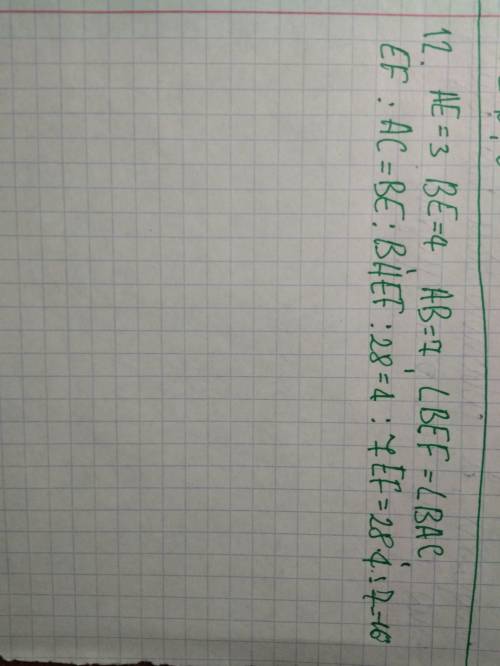 12. AE=3 BE=4, AB=7, ∠BEF=∠BAC,
EF : AC=BE:BAEF:28=4:7EF=28·4:7=16